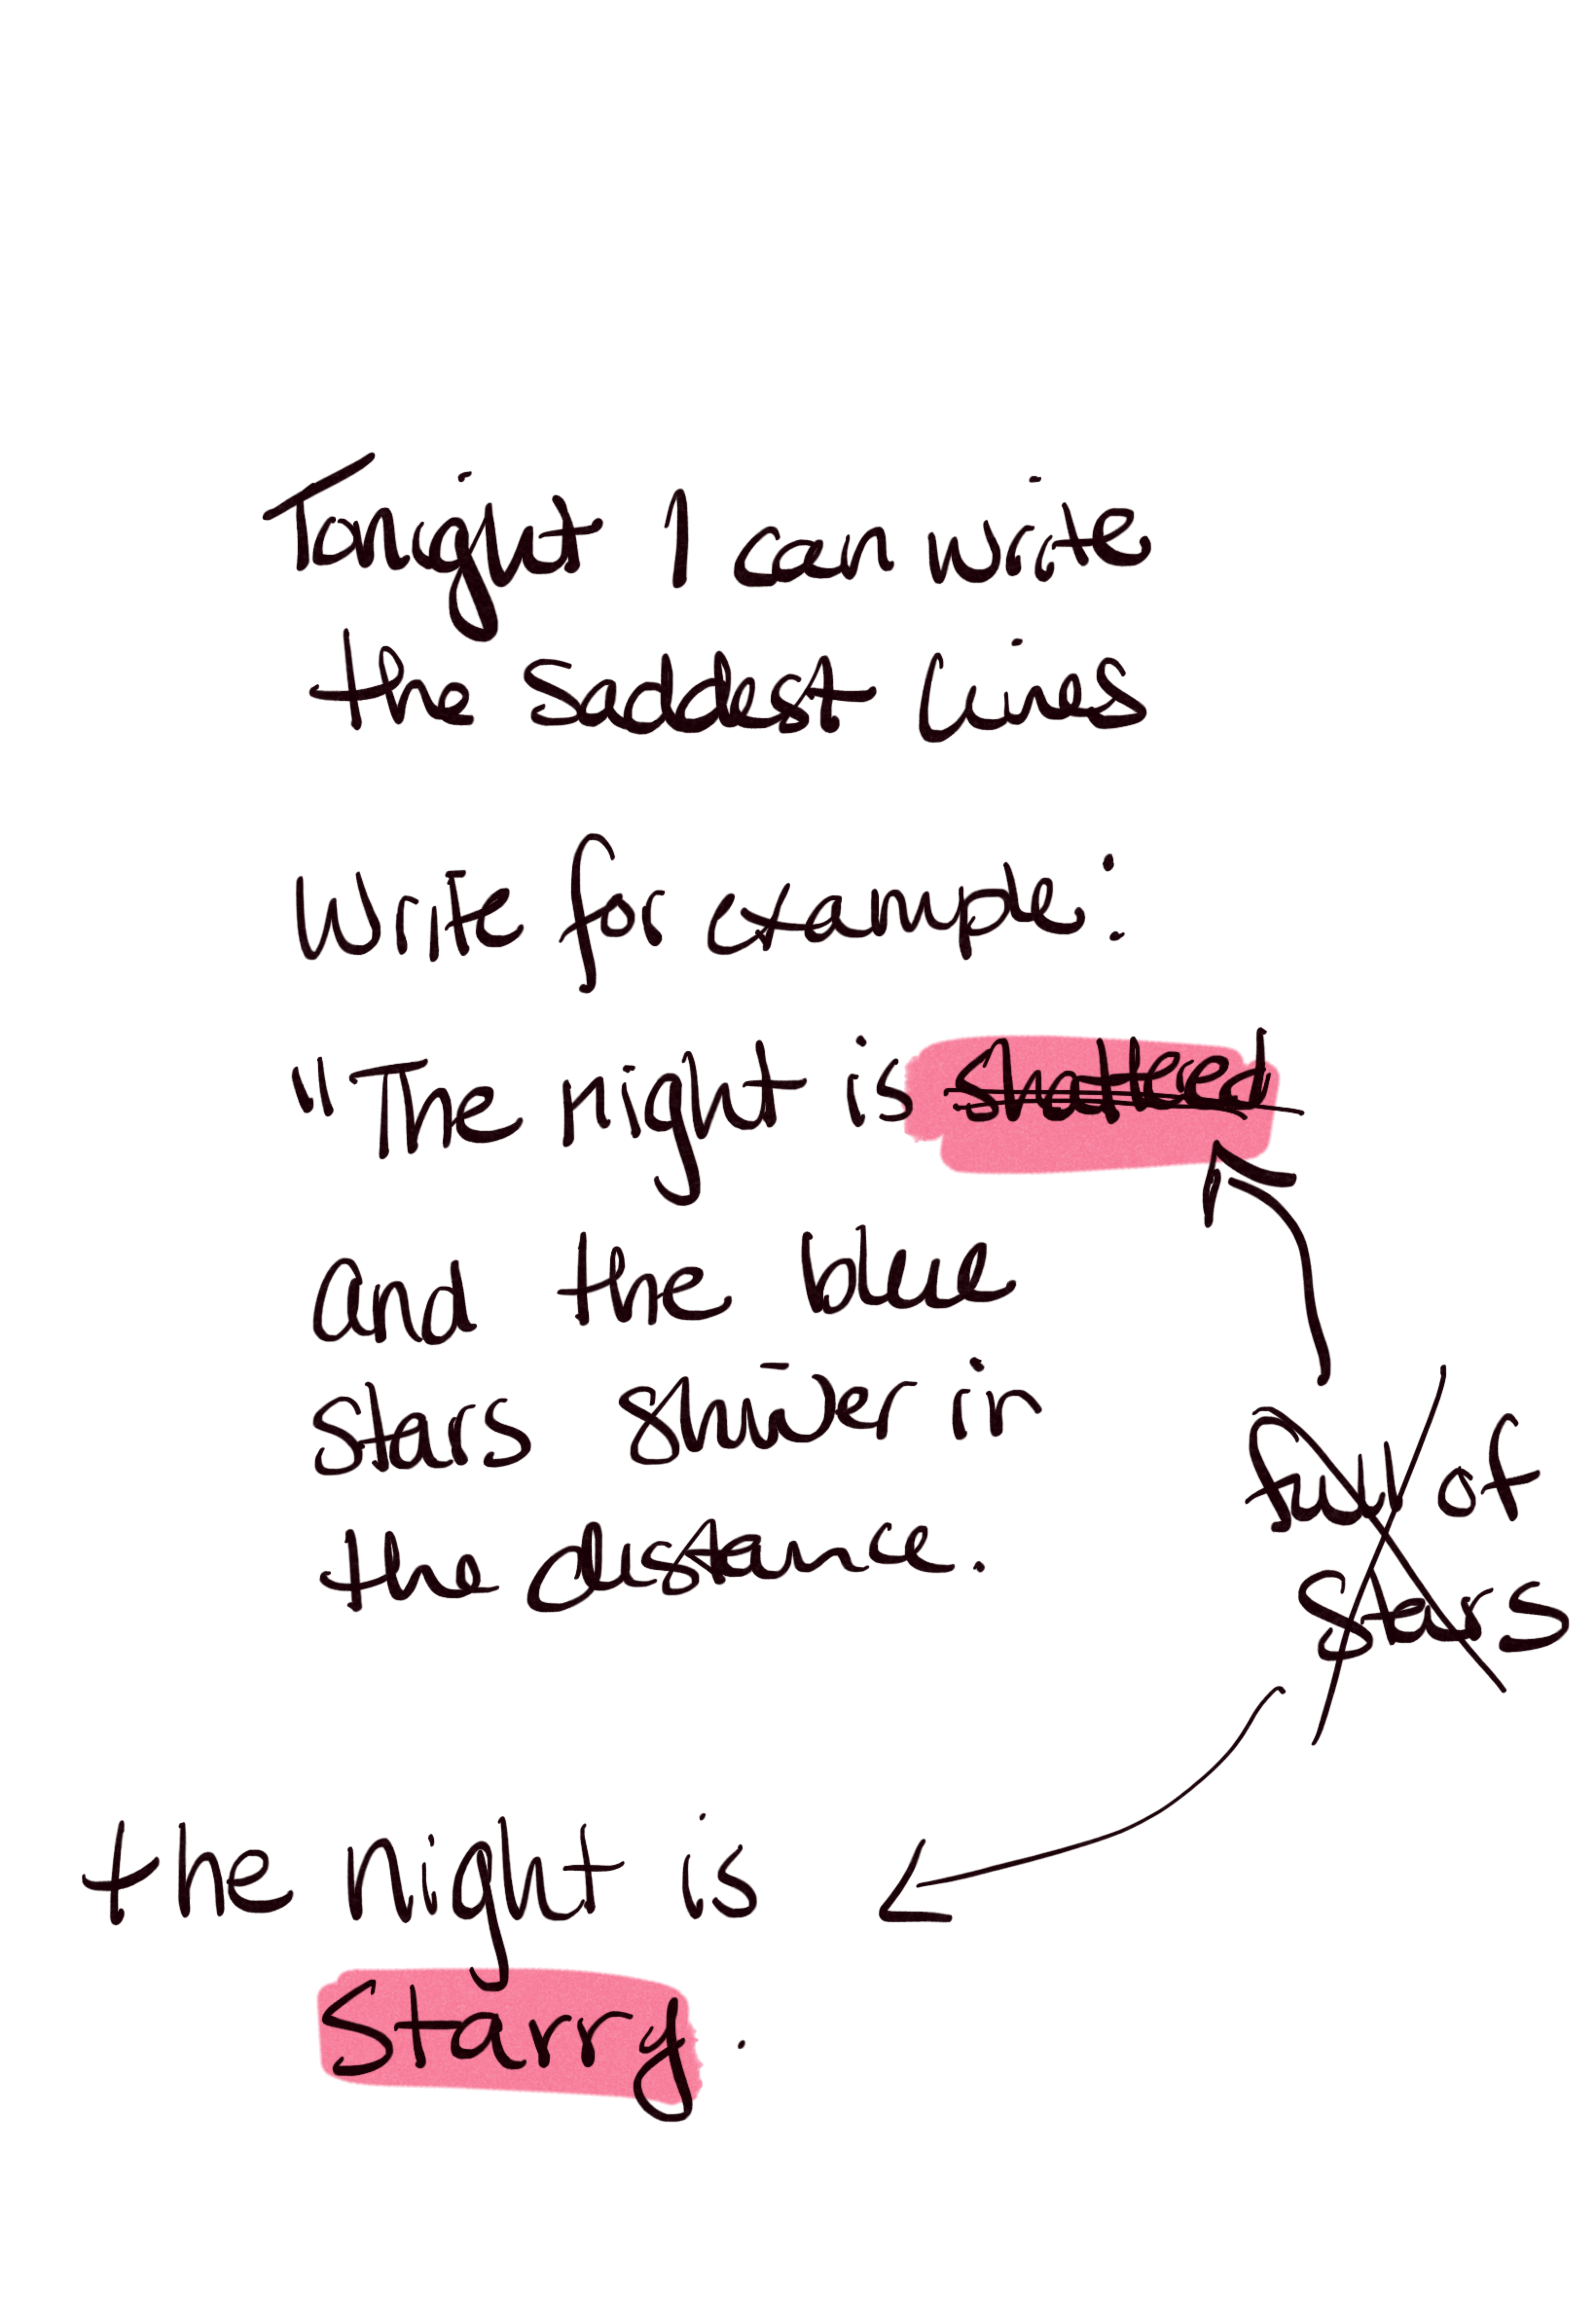 Tonight I can write
the saddest lines
Write for example:
"The night is shattered
and the blue
stars shiver in
the distance.
full of
stars
the night is
Starry.